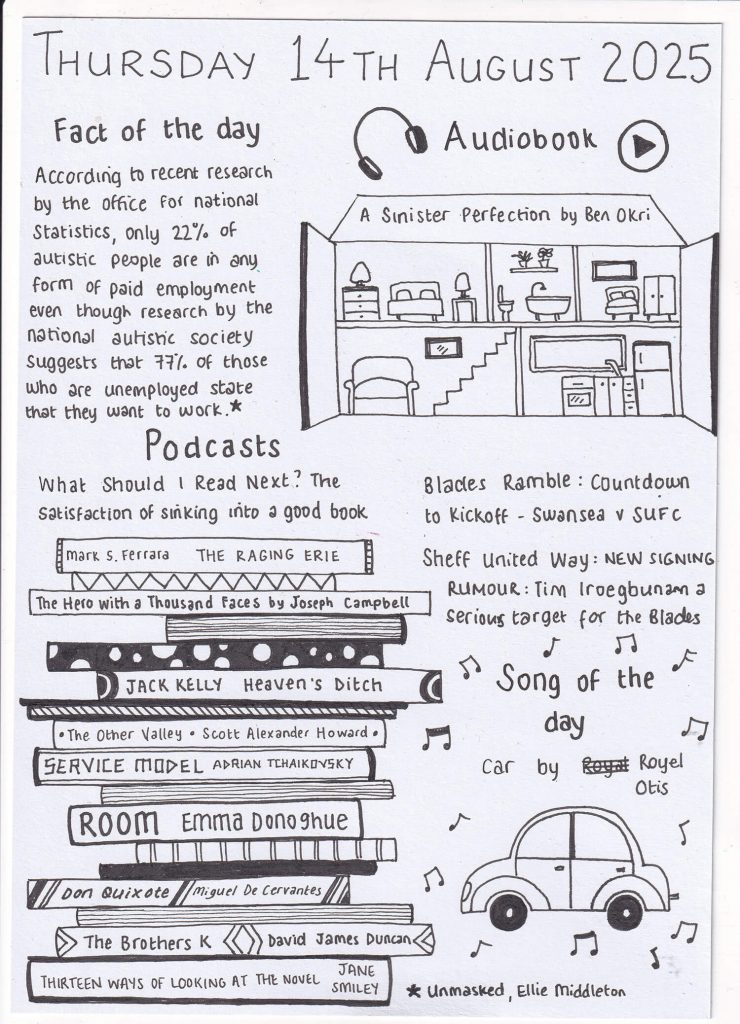 THURSDAY 14TH AUGUST 2025
Fact of the day
According to recent research
by the office for national
Statistics, only 22% of
autistic people are in any
form of paid employment
even though research by the
national autistic society
suggests that 77% of those
who are unemployed state
that they want to work.*
Audiobook
A Sinister Perfection by Ben Okri
Podcasts
What Should I Read Next? The
satisfaction of sinking into a good book
Mark S. Ferrara THE RAGING ERIE
The Hero with a Thousand Faces by Joseph Campbell
JACK KELLY Heaven's Ditch
• The Other Valley • Scott Alexander Howard •
SERVICE MODEL ADRIAN TCHAIKOVSKY
ROOM Emma Donoghue
Don Quixote Miguel De Cervantes
The Brothers K David James Duncan
THIRTEEN WAYS OF LOOKING AT THE NOVEL JANE
SMILEY
Blades Ramble: Countdown
to Kickoff - Swansea v SUFC
Sheff United Way: NEW SIGNING
RUMOUR: Tim Iroegbunam a
serious target for the Blades
Song of the
day
Car by Royal Royel
Otis
* Unmasked, Ellie Middleton